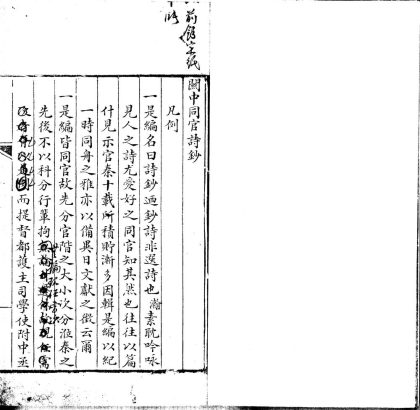 關中同官詩鈔
凡例
一是編名曰詩鈔迺鈔詩非選詩也瀚素耽吟咏
見人之詩尤愛好之同官知其然也往往以篇
什見示官秦十載所積貯漸多因輯是編以紀
一時同舟之雅亦以備異日文獻之徵云爾
一是編皆同官故先分官階之大小次分涖秦之
先後不以科分行輩拘
而提督都護主司學使附中丞